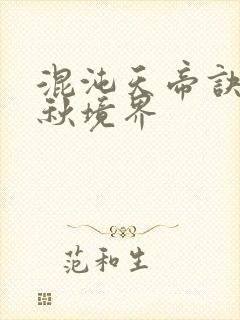 混沌天帝诀
秋境界
范和生